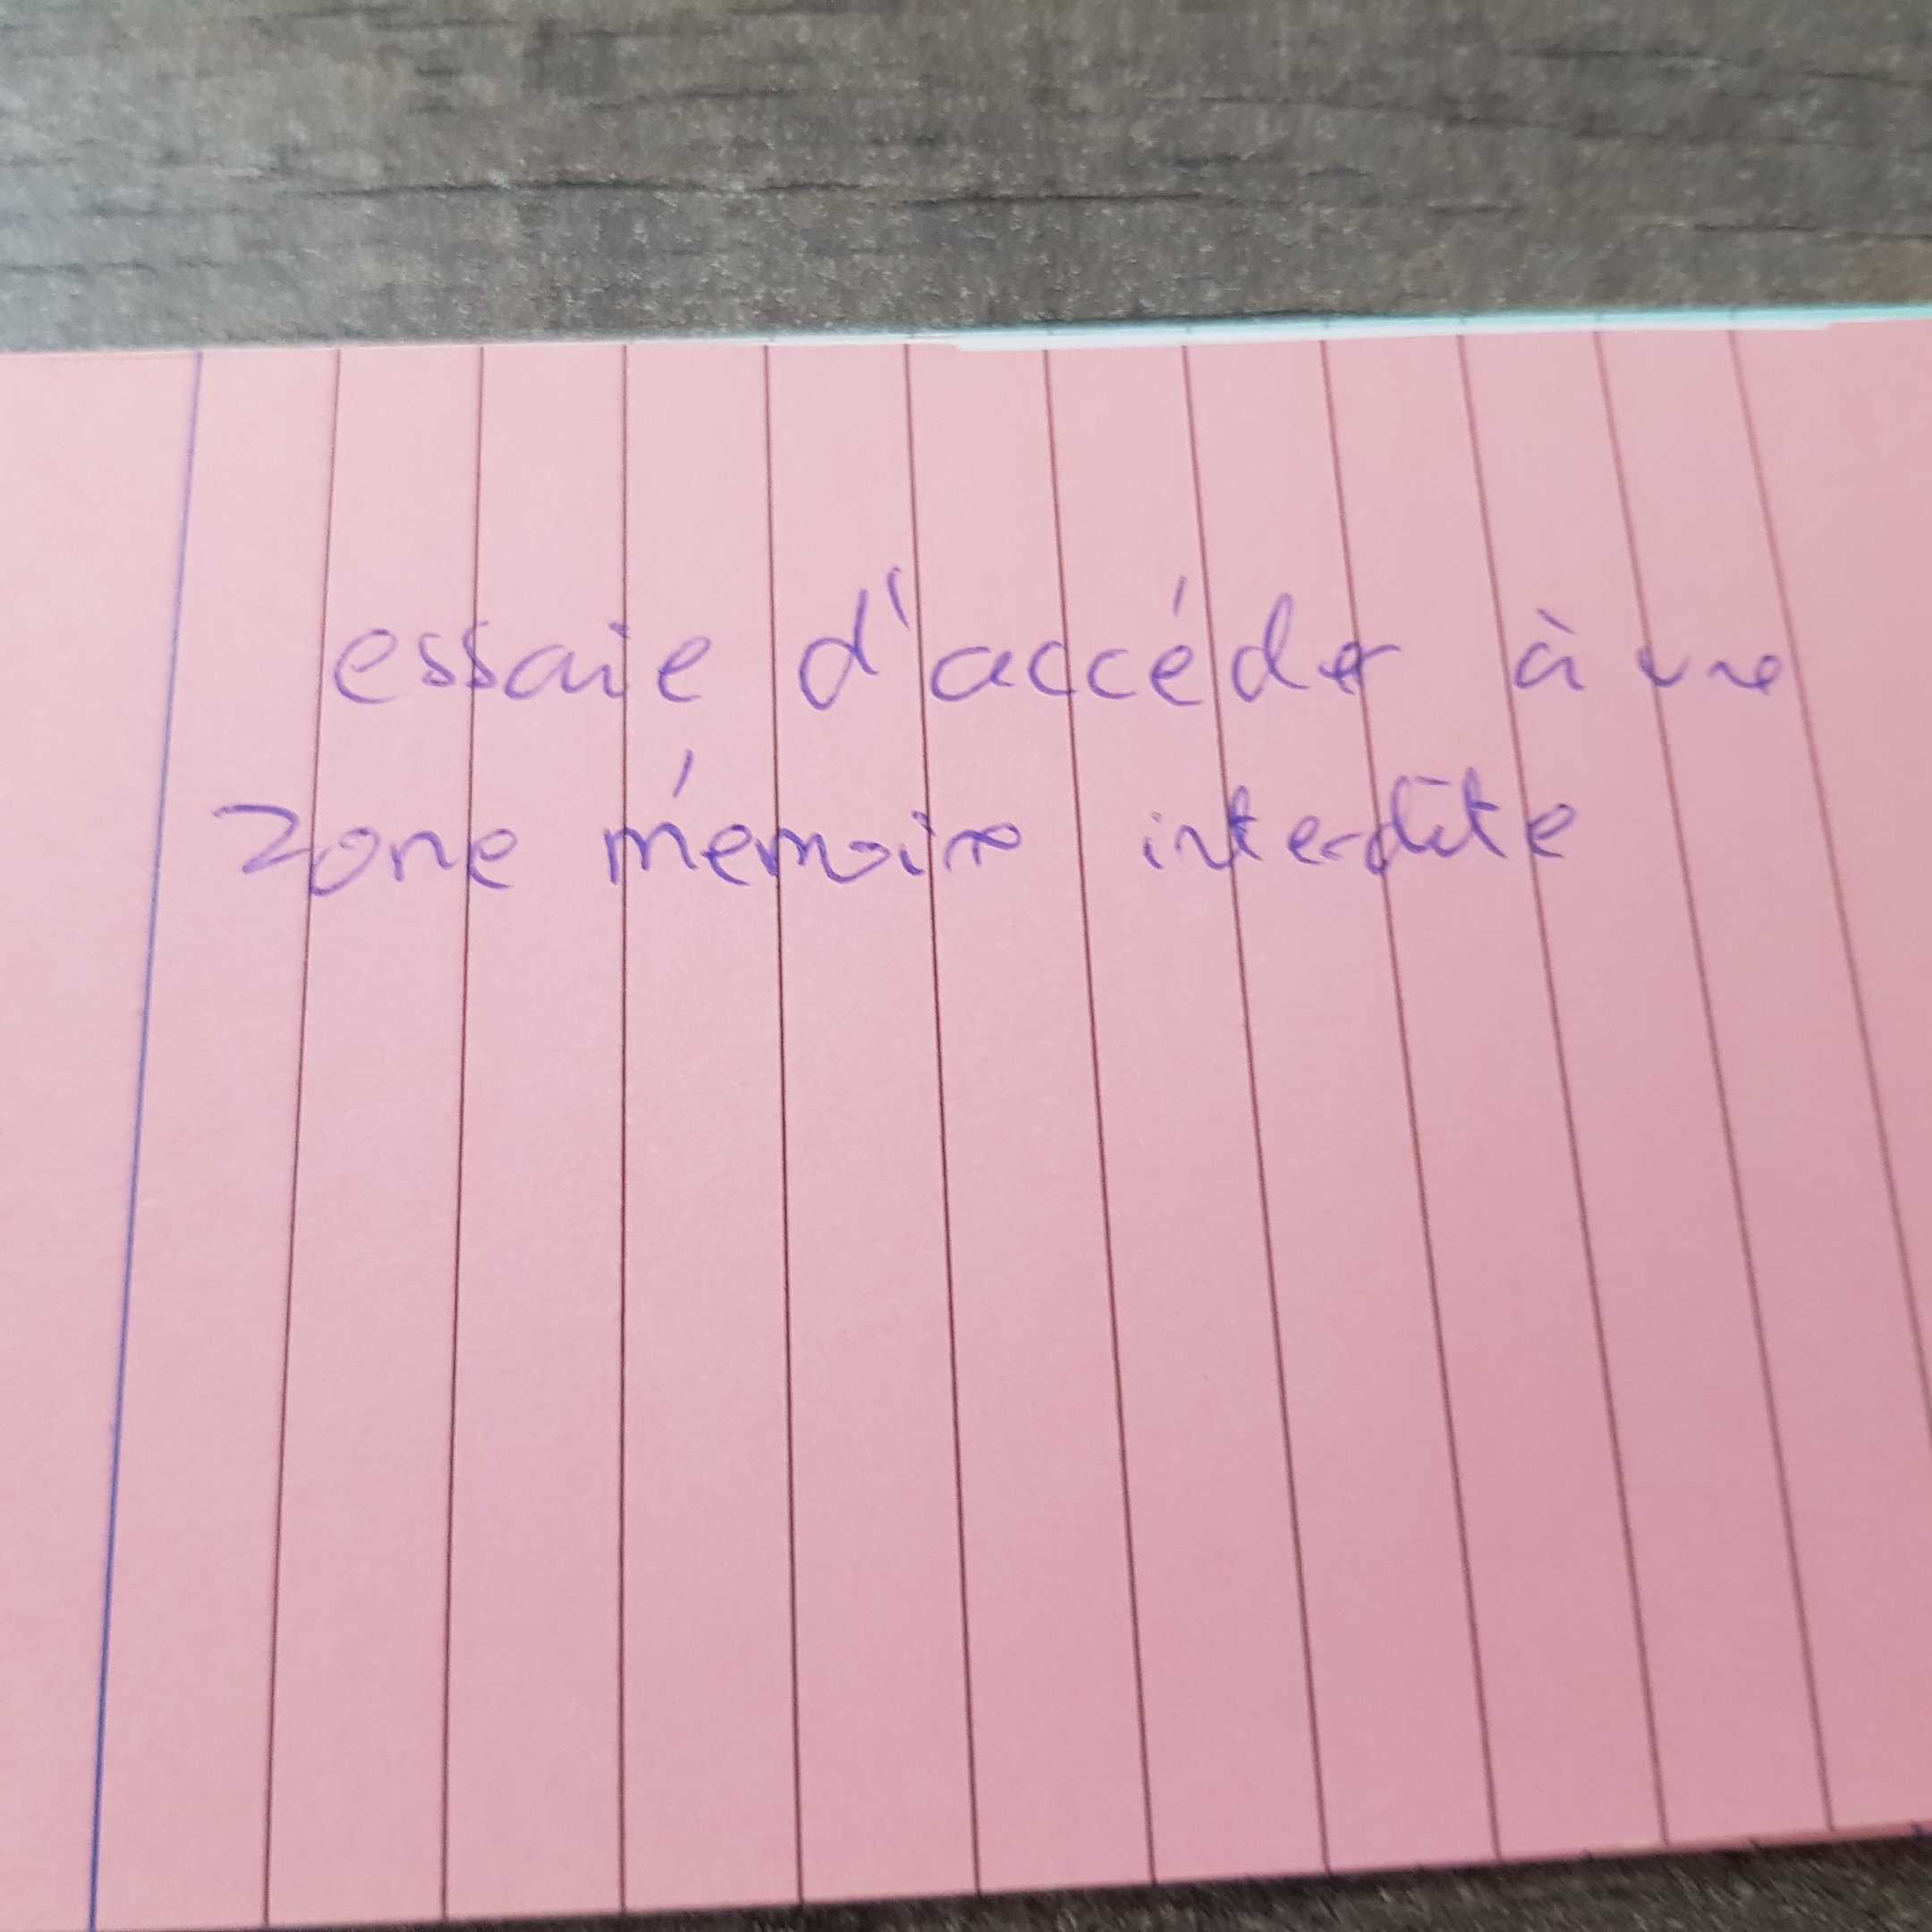 essaie d'accéder à une
zone mémoire interdite